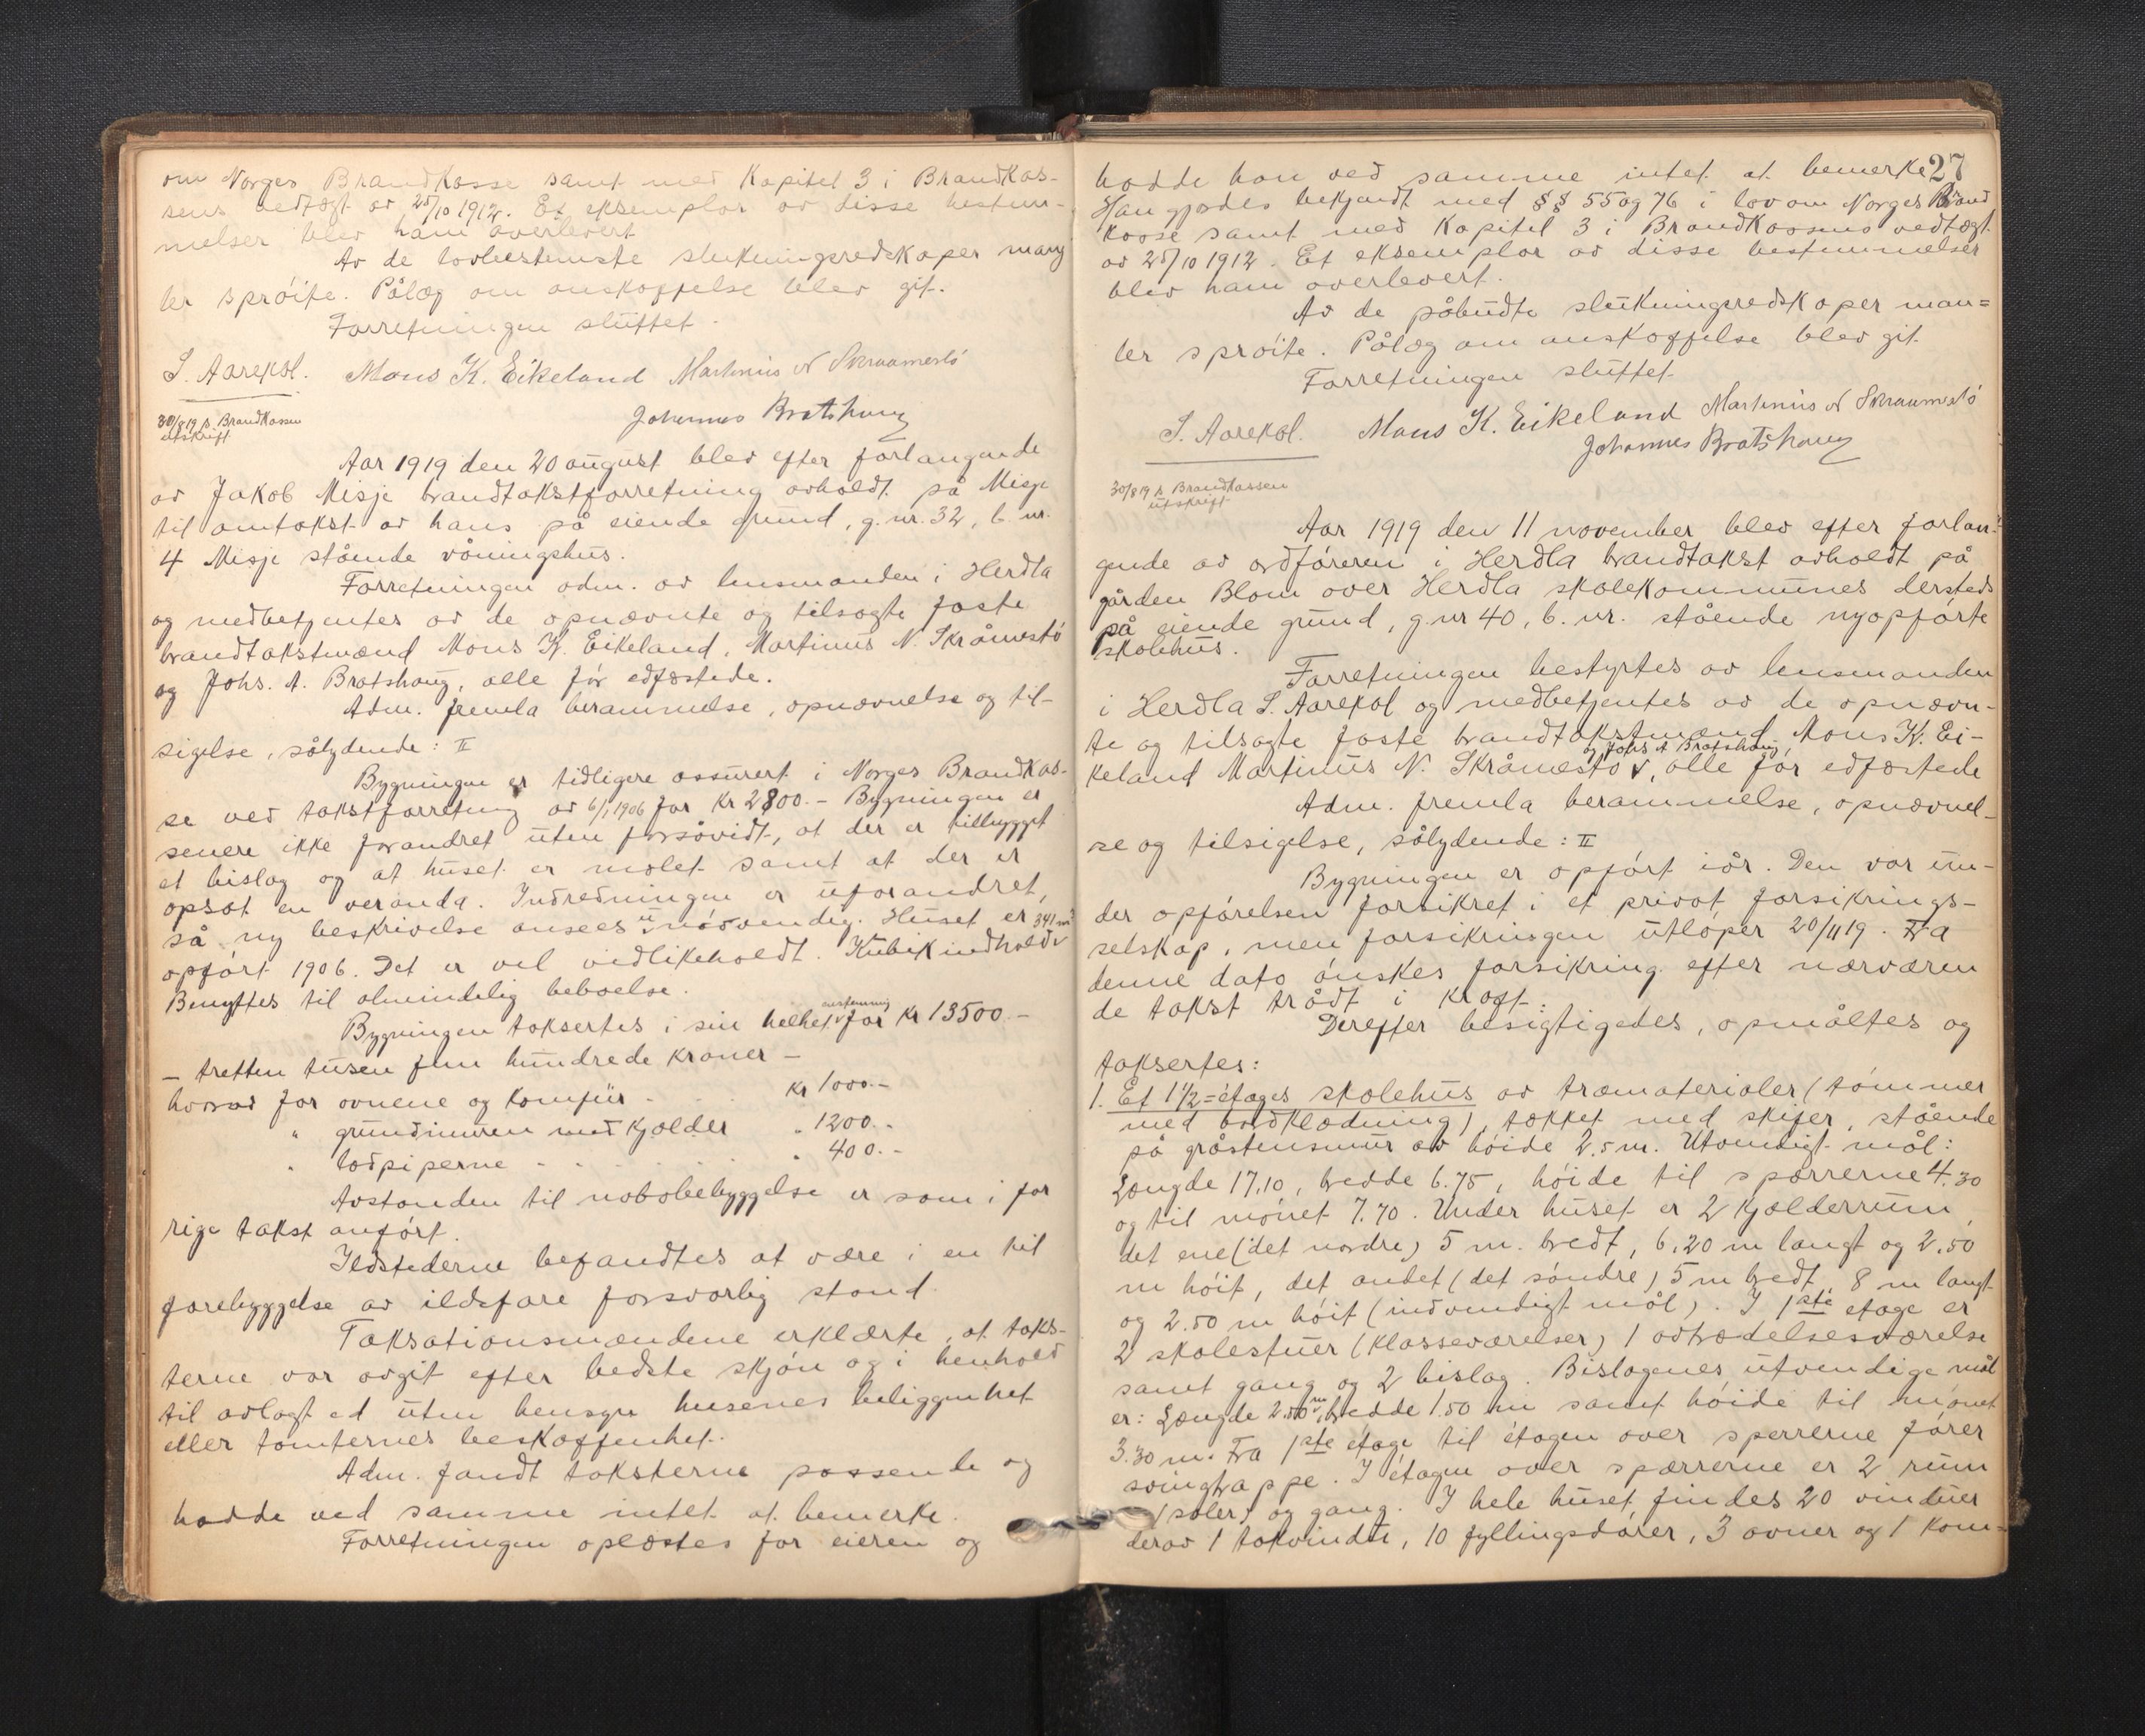 om Norges Brandkasse samt med Kapitel 3 i Brandkas-
sens vedtægt av 25/10 1912. Et eksemplar av disse bestem-
melser blev ham overlevert
Av de lovbestemte slukningsredskaper mang
ler sprøite. Pålæg om anskaffelse blev git.
Forretningen sluttet.
S. Aarekol. Mons K. Eikeland Martinus N Skraamestö
Johannes Bratshaug
30/8 19 s. Brandkassen
utskrift
Aar 1919 den 20 august blev efter forlangende
av Jakob Misje brandtakstforretning avholdt på Misje
til omtakst av hans på eiende grund, g.nr. 32, b.nr.
4 Misje stående våningshus.
Forretningen adm. av lensmanden i Herdla
og medbetjentes av de opnævnte og tilsagte faste
brandtakstmænd Mons K. Eikeland, Martinus N. Skråmestö
og Johs. A. Bratshaug, alle för edfæstede.
Adm. fremla berammelse, opnævnelse og til-
sigelse, sålydende: II
Bygningen er tidligere assurert i Norges Brandkas-
se ved takstforretning av 6/1 1906 for Kr 2800.- Bygningen er
senere ikke forandret uten forsåvidt, at der er tilbygget
et bislag og at huset er malet samt at der er
opsat en veranda. Indredningen er uforandret,
så ny beskrivelse ansees unödvendig. Huset er 341 m3
opfört 1906. Det er vel vedlikeholdt. Kubikindhold v
Benyttes til almindelig beboelse.
Bygningen taksertes i sin helhet v for Kr 13500.-
- tretten tusen fem hundrede kroner -
hvorav for ovnene og komfur . . . kr 1000.-
" grundmuren med Kjelder " 1200.-
" lodpiperne - - . . . . " 400.-
Avstanden til nabobebyggelse er som i for
rige takst anfört.
Ildstederne befandtes at være i en til
forebyggelse av ildsfare forsvarlig stand.
Taksationsmændene erklærte, at taks-
terne var avgit efter bedste skjön og i henhold
til avlagt ed uten hensyn husenes beliggenhet
eller tomternes beskaffenhet.
Adm. fandt taksterne passende og
hadde ved samme intet at bemerke.
Forretningen oplæstes for eieren og
27
hadde han ved samme intet at bemerke
Han gjordes bekjendt med §§ 55 og 76 i lov om Norges Brand
kasse samt med Kapitel 3 i Brandkassens vedtægt
av 25/10 1912. Et eksemplar av disse bestemmelser
blev ham overlevert.
Av de påbudte slukningsredskaper man=
ler sprøite. Pålæg om anskaffelse blev git
Forretningen sluttet
S. Aarekol. Mons K. Eikeland Martinus N Skraamestö
Johannes Bratshaug
30/8 19 s. Brandkassen
utskrift
Aar 1919 den 11 november blev efter forlan-
gende av ordföreren i Herdla brandtakst avholdt på
gården Blom over Herdla skolekommunes dersteds
på eiende grund, g.nr 40, b.nr. stående nyopförte
skolehus.
Forretningen bestyrtes av lensmanden
i Herdla S. Aarekol og medbetjentes av de opnævn-
te og tilsagte faste brandtakstmænd Mons K. Ei-
og Johs A Bratshaug,
keland Martinus N. Skråmestö v, alle för edfæstede
Adm. fremla berammelse, opnævnel-
se og tilsigelse, sålydende: II
Bygningen er opfört iår. Den var un-
der opförelsen forsikret i et privat forsikrings-
selskap, men forsikringen utlöper 20/11 19. Fra
denne dato önskes forsikring efter nærværen
de takst trådt i kraft.
Derefter besigtigedes, opmåltes og
taksertes:
1. Et 1 1/2=étages skolehus av træmaterialer (tömmer
med bordklædning), tækket med skifer, stående
på gråstensmur av höide 2.5 m. Utvendigt mål:
Længde 17.10, bredde 6.75, höide til sperrerne 4.30
og til mönet 7.70. Under huset er 2 kjælderrum,
det ene (det nordre) 5 m. bredt, 6.20 m langt og 2.50
m höit, det andet (det söndre) 5 m bredt, 8 m langt
og 2.50 m höit (indvendigt mål). I 1ste etage er
2 skolestuer (klasseværelser) 1 avtrædelsesværelse
samt gang og 2 bislag. Bislagenes utvendige mål
er: Længde 2.50 m, bredde 1.50 m samt höide til mönet
3.30 m. Fra 1ste étage til étagen over sperrerne förer
svingtrappe. I étagen over sperrerne er 2 rum
(saler) og gang. I hele huset findes 20 vinduer
derav 1 takvindu, 10 fyllingsdörer, 3 ovner og 1 kom-